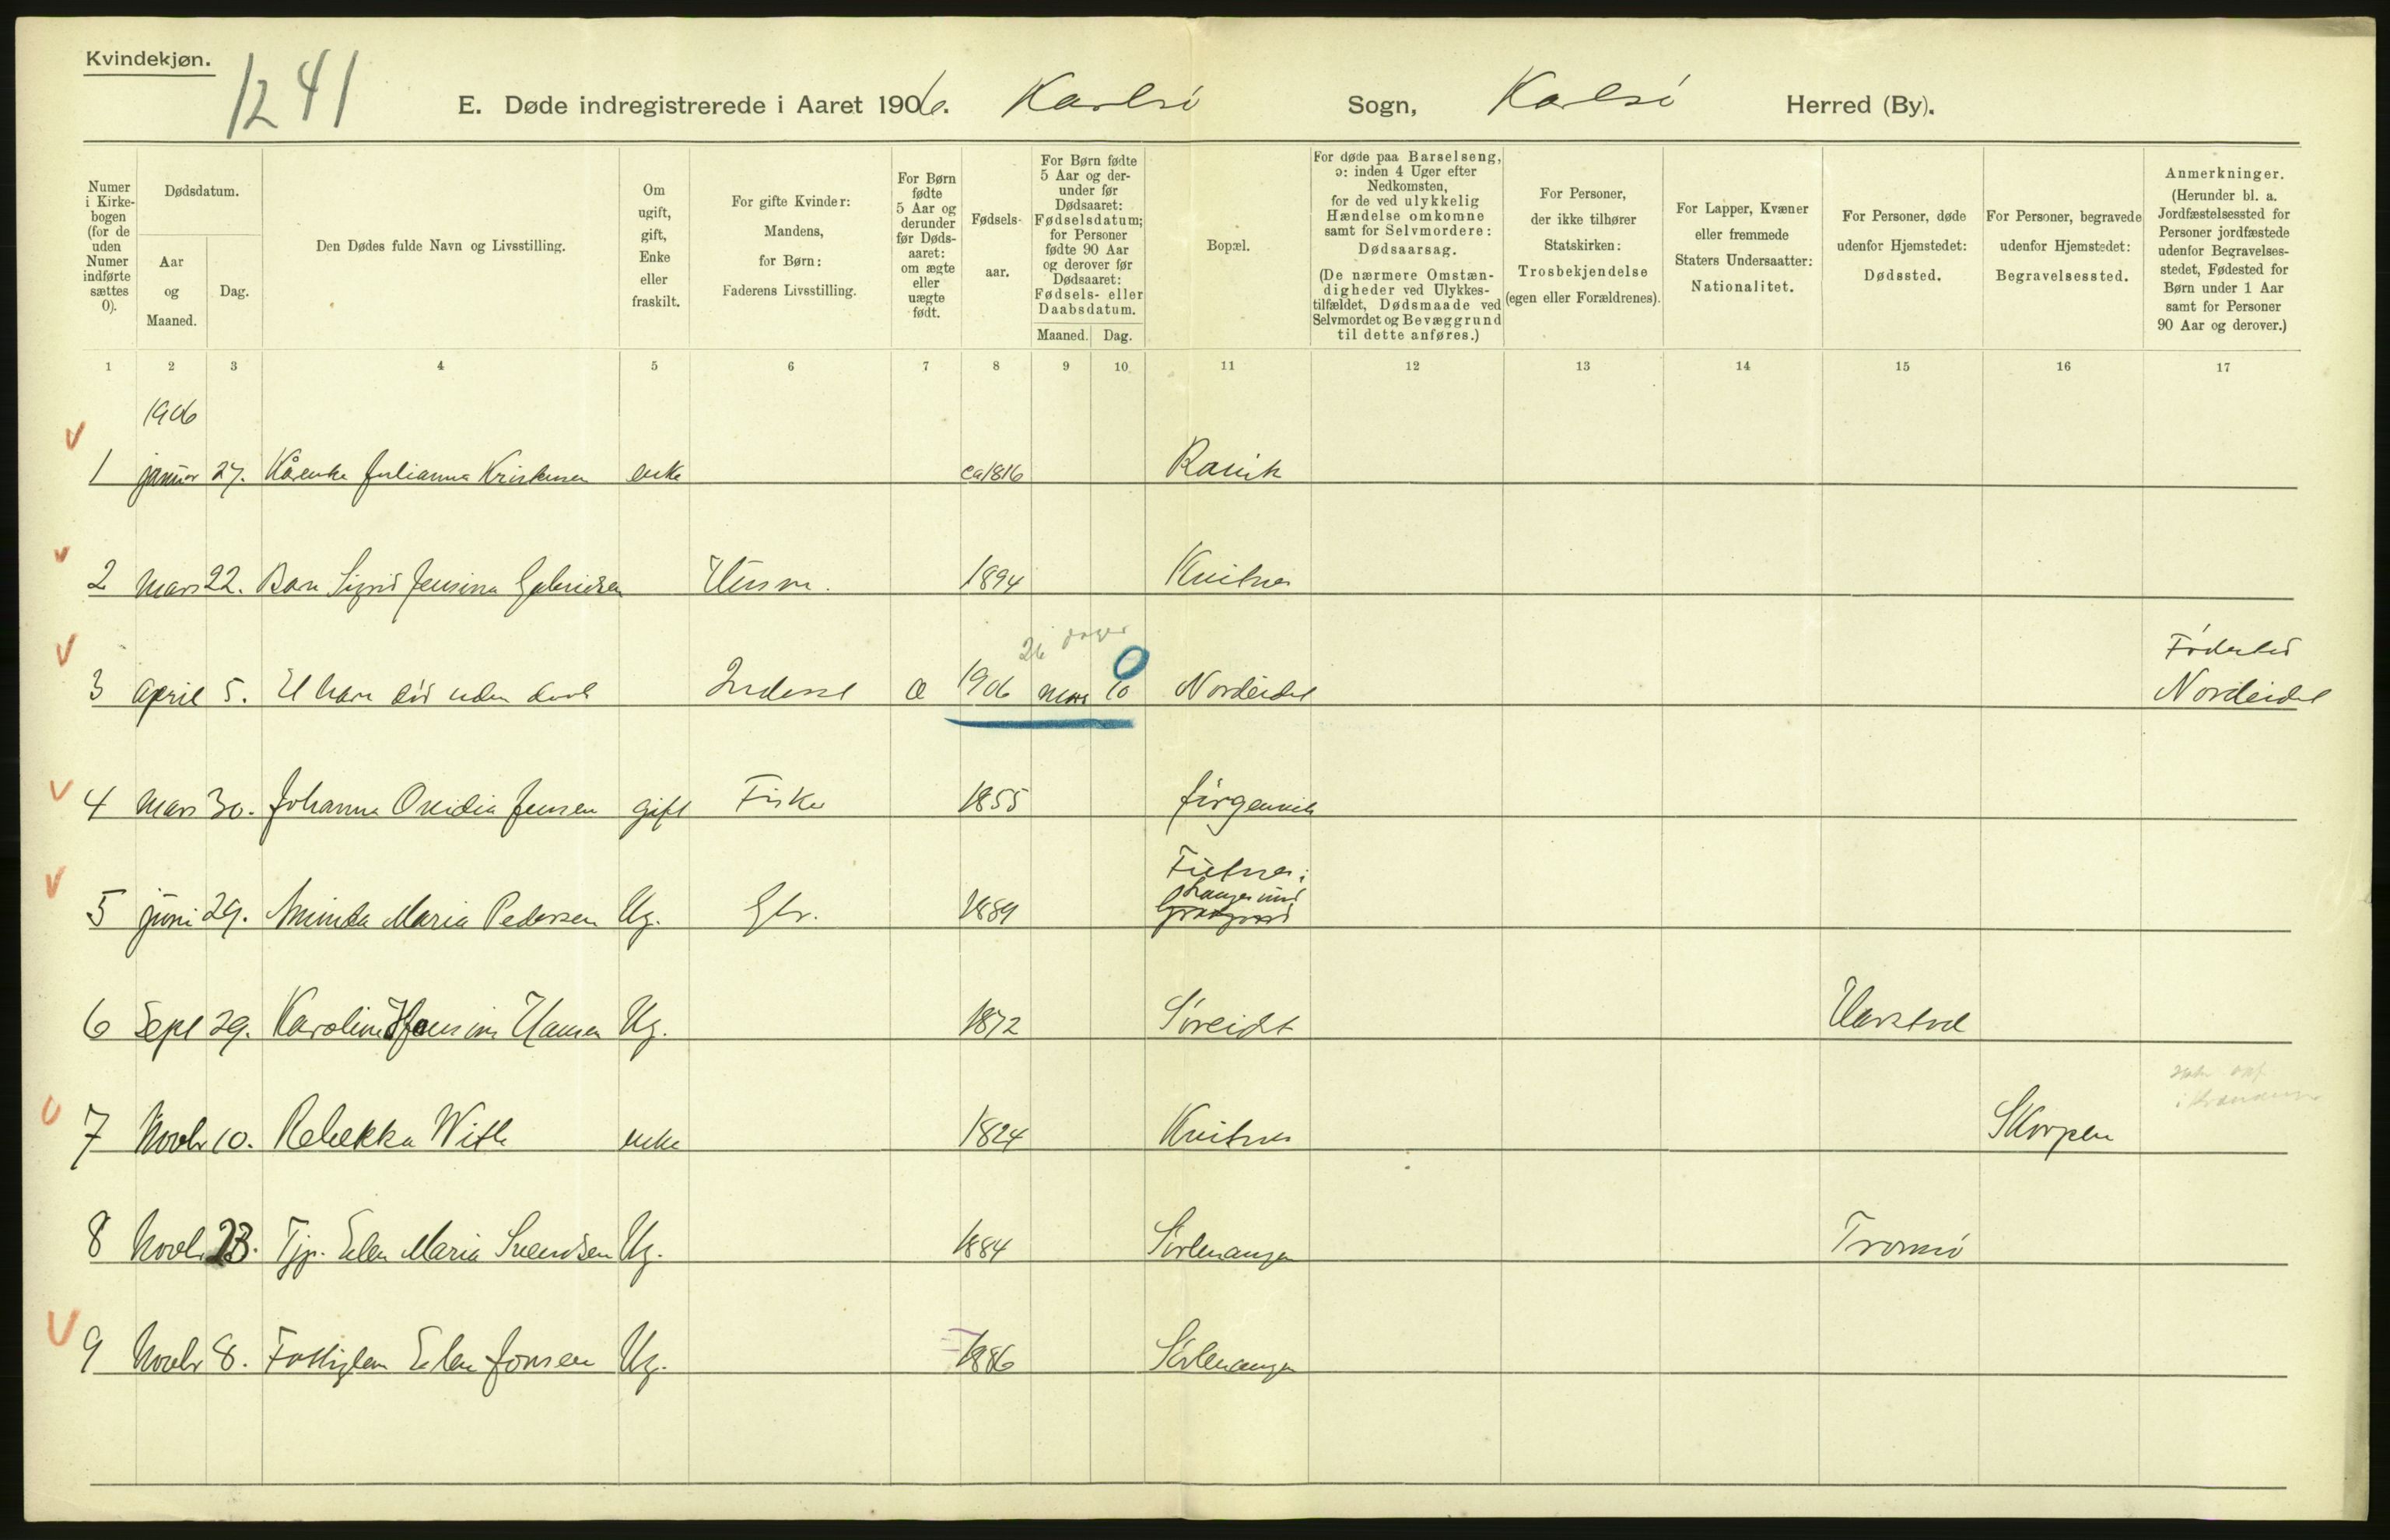 Kvindekjøn.
1241
E. Døde indregistrerede i Aaret 1906. Karlsö Sogn, Karlsö Herred (By).
Numer i Kirke-bogen (for de uden Numer indførte sættes 0).
Dødsdatum.
Aar og Maaned.
Dag.
Den Dødes fulde Navn og Livsstilling.
Om ugift, gift, Enke eller fraskilt.
For gifte Kvinder: Mandens, for Børn: Faderens Livsstilling.
For Børn fødte 5 Aar og derunder før Døds-aaret: om ægte eller uægte født.
Fødsels-aar.
For Børn fødte 5 Aar og der-under før Dødsaaret: Fødselsdatum; for Personer fødte 90 Aar og derover før Dødsaaret: Fødsels- eller Daabsdatum.
Maaned. Dag.
Bopæl.
For døde paa Barselseng, ɔ: inden 4 Uger efter Nedkomsten, for de ved ulykkelig Hændelse omkomne samt for Selvmordere: Dødsaarsag.
(De nærmere Omstæn-digheder ved Ulykkes-tilfældet, Dødsmaade ved Selvmordet og Bevæggrund til dette anføres.)
For Personer, der ikke tilhører Statskirken: Trosbekjendelse (egen eller Forældrenes).
For Lapper, Kvæner eller fremmede Staters Undersaatter: Nationalitet.
For Personer, døde udenfor Hjemstedet: Dødssted.
For Personer, begravede udenfor Hjemstedet: Begravelsessted.
Anmerkninger.
(Herunder bl. a. Jordfæstelsessted for Personer jordfæstede udenfor Begravelses-stedet, Fødested for Børn under 1 Aar samt for Personer 90 Aar og derover.)
1 2 3 4 5 6 7 8 9 10 11 12 13 14 15 16 17
1906
1 januar 27. Julianna Kristensen enke ca 1816 Ravik
2 Mars 22. Barn Sigrid Jensina Gabrielsen Husm. 1894 Kvitnes
26 dager 0 Fødested
3 April 5. Et barn död uden daab Inderst æ 1906 Mars 10 Nordeidet Nordeidet
4 Mars 30. Johanna Ovidia Jensen gift Fisker 1855 Jörgenvik
5 juni 29. Aminda Maria Pedersen Ug. Gbr. 1889
6 Sept 29. Karoline Hansen Ug. 1872 Söreidet Harstad
7 Novbr 10. Rebekka With enke 1824 Kvitnes Skorpen
8 Novbr 23. Tjp. Elen Maria Svendsen Ug. 1884 Sörlenangen Tromsö
9 Novbr 8. Fattiglem Elen Jonsen Ug. 1886 Sörlenangen